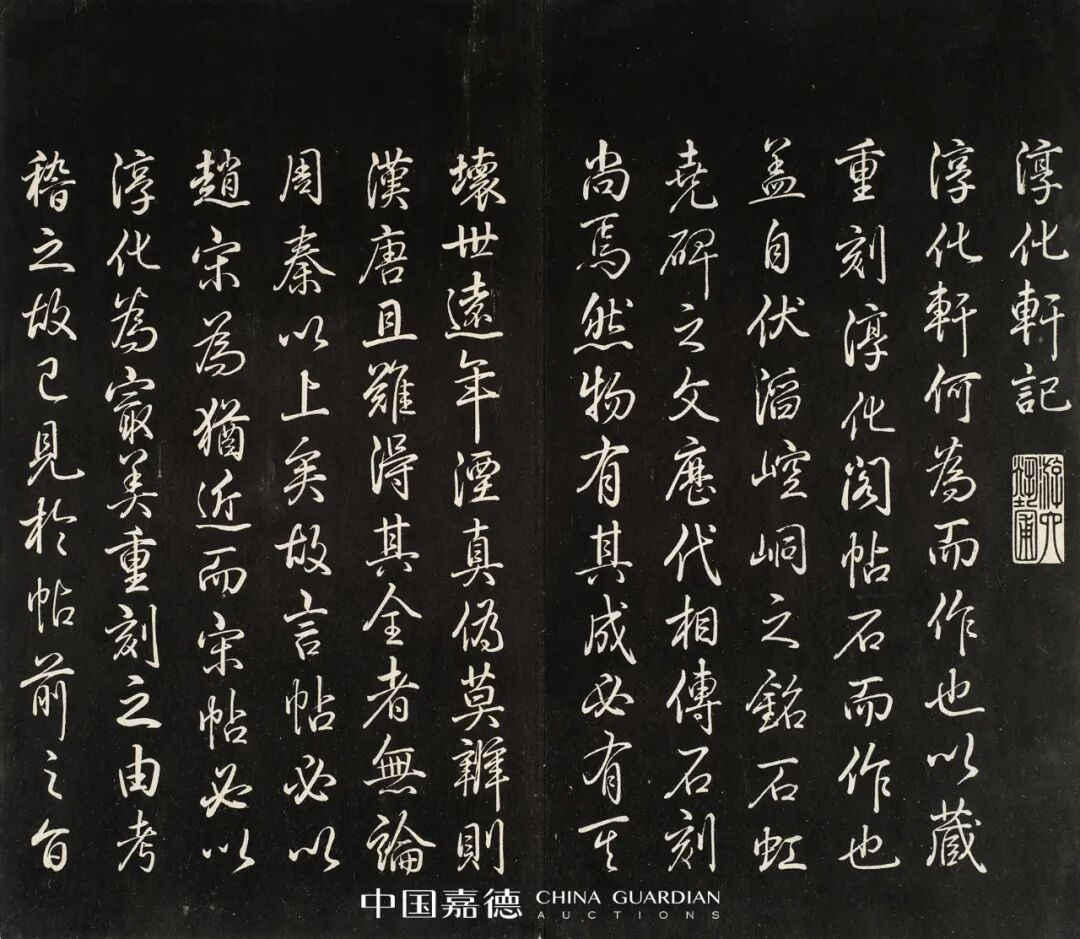 淳化軒記
淳化軒何為而作也以蔵
重刻淳化閣帖石而作也
盖自伏滔崆峒之銘石虹
堯碑之文歷代相傳石刻
尚焉然物有其成必有其
壞世遠年湮真偽莫辨則
漢唐且難得其全者無論
周秦以上矣故言帖必以
趙宋為猶近而宋帖必以
淳化為寂美重刻之由考
稽之故已見於帖前之旨
中国嘉德 CHINA GUARDIAN
AUCTIONS